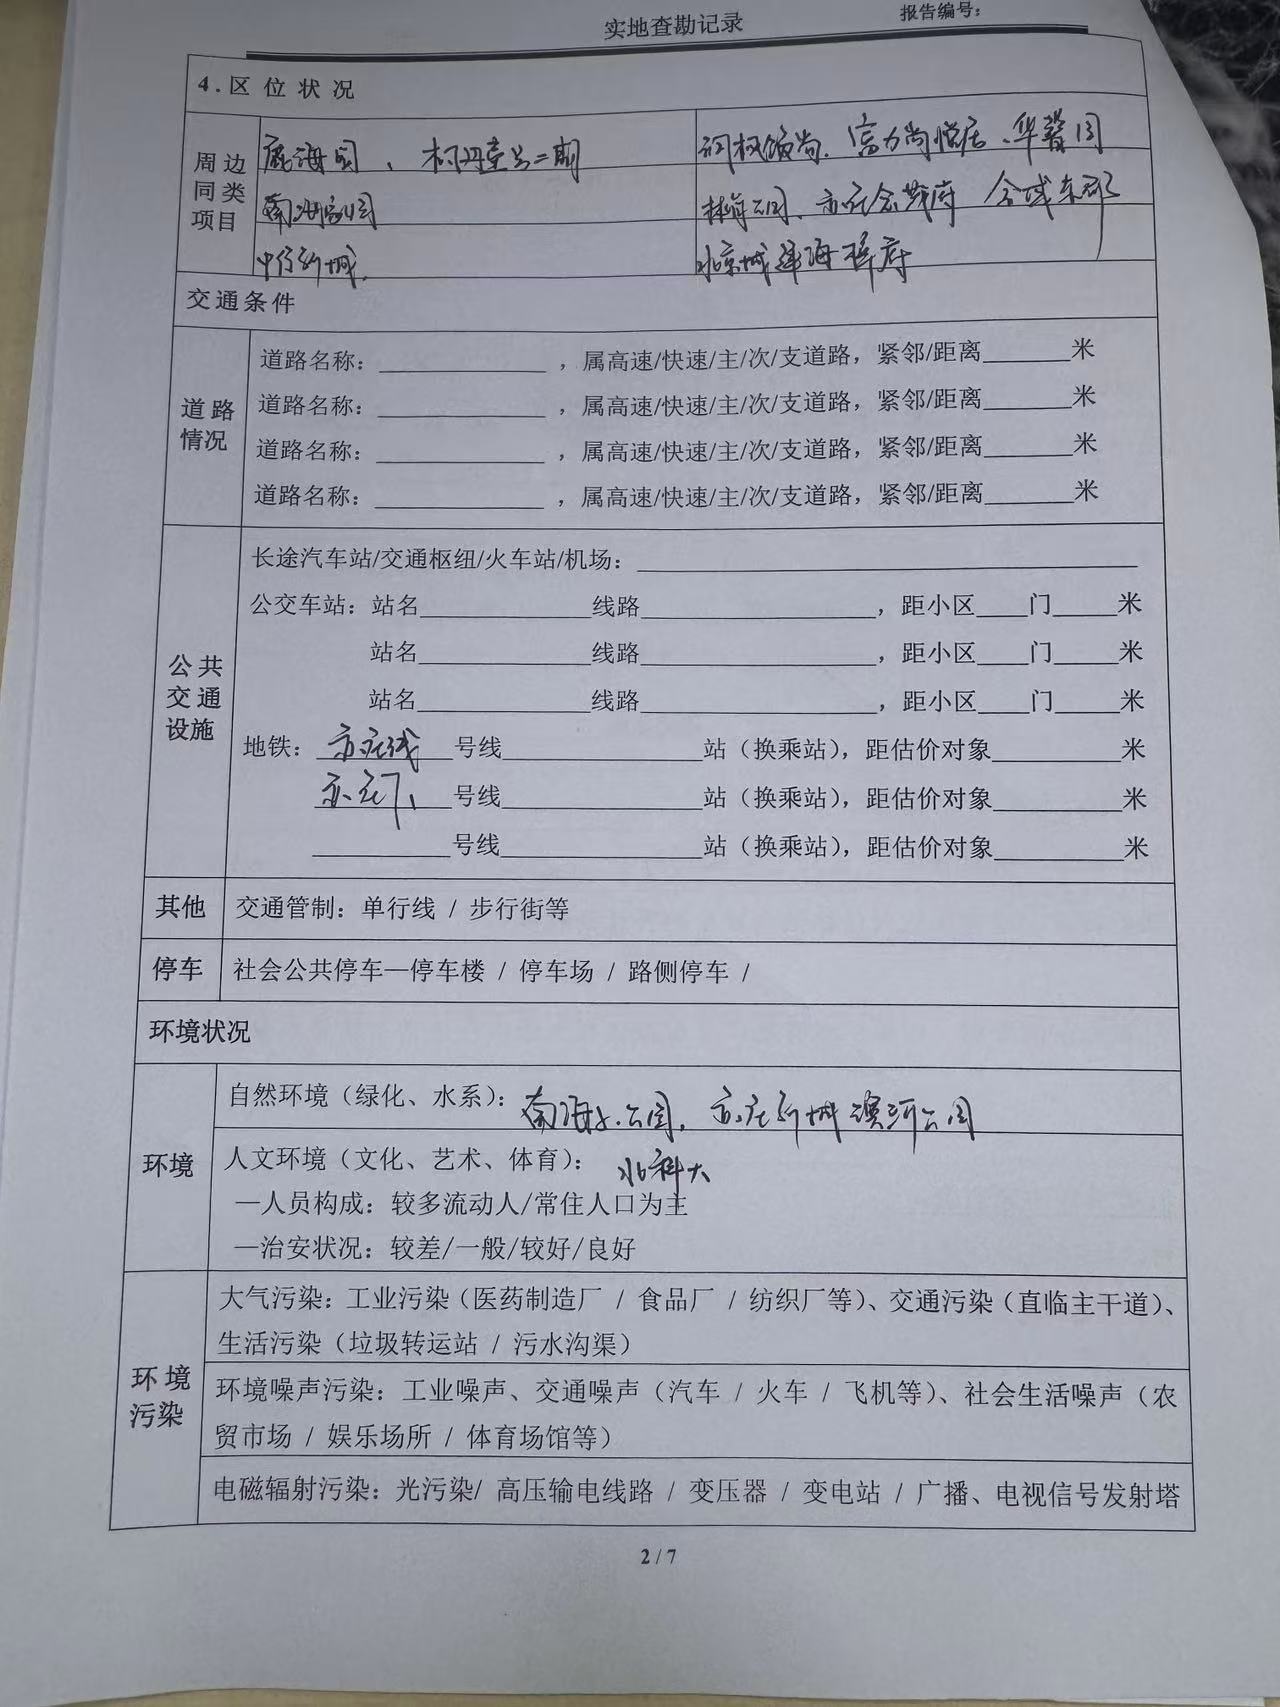 实地查勘记录
报告编号：
4.区位状况
周边同类项目
鹿海园、
二期
富力尚悦居、华馨园
南海家园
林肯公园、亦庄金茂府 金域东郡
北京城建海梓府
交通条件
道路情况
道路名称：________，属高速/快速/主/次/支道路，紧邻/距离____米
道路名称：________，属高速/快速/主/次/支道路，紧邻/距离____米
道路名称：________，属高速/快速/主/次/支道路，紧邻/距离____米
道路名称：________，属高速/快速/主/次/支道路，紧邻/距离____米
公共交通设施
长途汽车站/交通枢纽/火车站/机场：________
公交车站：站名________线路________，距小区____门____米
站名________线路________，距小区____门____米
站名________线路________，距小区____门____米
地铁：亦庄线号线________站（换乘站），距估价对象____米
亦庄T1号线________站（换乘站），距估价对象____米
________号线________站（换乘站），距估价对象____米
其他 交通管制：单行线 / 步行街等
停车 社会公共停车—停车楼 / 停车场 / 路侧停车 /
环境状况
环境
自然环境（绿化、水系）：南海子公园，亦庄新城滨河公园
人文环境（文化、艺术、体育）：北科大
—人员构成：较多流动人/常住人口为主
—治安状况：较差/一般/较好/良好
环境污染
大气污染：工业污染（医药制造厂 / 食品厂 / 纺织厂等）、交通污染（直临主干道）、
生活污染（垃圾转运站 / 污水沟渠）
环境噪声污染：工业噪声、交通噪声（汽车 / 火车 / 飞机等）、社会生活噪声（农
贸市场 / 娱乐场所 / 体育场馆等）
电磁辐射污染：光污染/ 高压输电线路 / 变压器 / 变电站 / 广播、电视信号发射塔
2 / 7